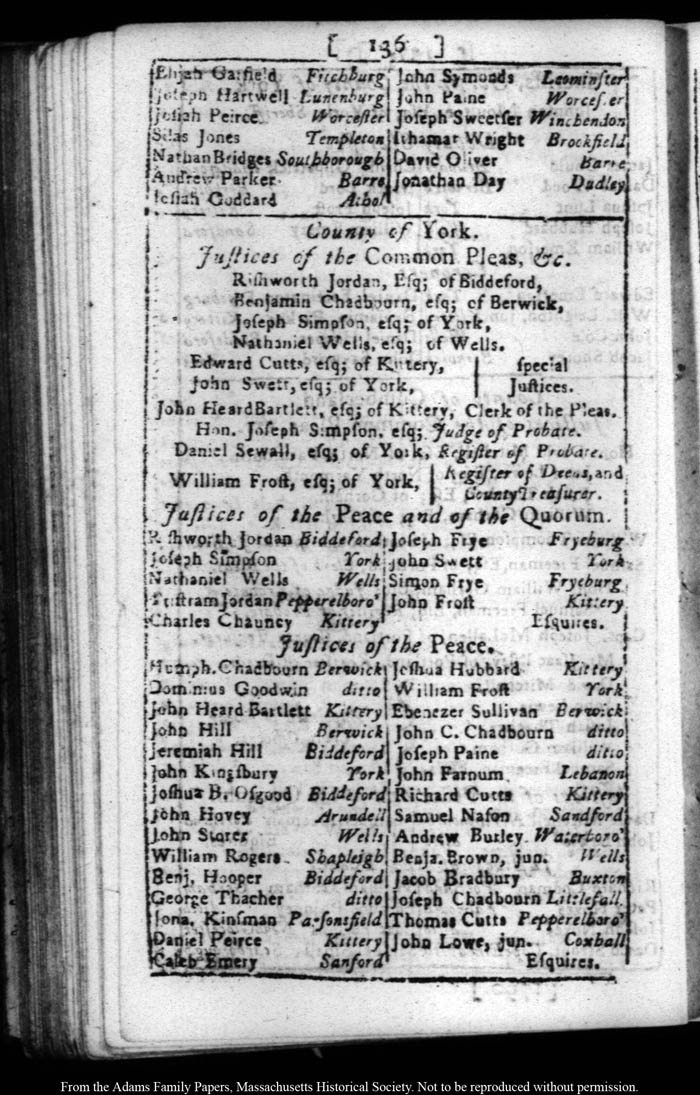 [ 136 ]
Elijah Garfield Fitchburg John Symonds Leominster
Joseph Hartwell Lunenburg John Paine Worcester
Josiah Peirce Worcester Joseph Sweetser Winchendon
Silas Jones Templeton Ithamar Wright Brockfield
Nathan Bridges Southborough David Oliver Barre
Andrew Parker Barre Jonathan Day Dudley
Josiah Goddard Athol
County of York.
Justices of the Common Pleas, &c.
Rishworth Jordan, Esq; of Biddeford,
Benjamin Chadbourn, esq; of Berwick,
Joseph Simpson, esq; of York,
Nathaniel Wells, esq; of Wells.
Edward Cutts, esq; of Kittery, special
John Swett, esq; of York, Justices.
John Heard Bartlett, esq; of Kittery, Clerk of the Pleas.
Hon. Joseph Simpson, esq; Judge of Probate.
Daniel Sewall, esq; of York, Register of Probate.
William Frost, esq; of York, Register of Deeds, and
County Treasurer.
Justices of the Peace and of the Quorum.
Rishworth Jordan Biddeford Joseph Frye Fryeburg
Joseph Simpson York John Swett York
Nathaniel Wells Wells Simon Frye Fryeburg
Tristram Jordan Pepperelboro' John Frost Kittery
Charles Chauncy Kittery Esquires.
Justices of the Peace.
Humph. Chadbourn Berwick Joshua Hubbard Kittery
Dominius Goodwin ditto William Frost York
John Heard Bartlett Kittery Ebenezer Sullivan Berwick
John Hill Berwick John C. Chadbourn ditto
Jeremiah Hill Biddeford Joseph Paine ditto
John Kingsbury York John Farnum Lebanon
Joshua B. Osgood Biddeford Richard Cutts Kittery
John Hovey Arundell Samuel Nason Sandford
John Storer Wells Andrew Burley Waterboro'
William Rogers Shapleigh Benja. Brown, jun. Wells
Benj. Hooper Biddeford Jacob Bradbury Buxton
George Thacher ditto Joseph Chadbourn Littlefall
Jona. Kinsman Parsonsfield Thomas Cutts Pepperelboro'
Daniel Peirce Kittery John Lowe, jun. Coxhall
Caleb Emery Sanford Esquires.
From the Adams Family Papers, Massachusetts Historical Society. Not to be reproduced without permission.